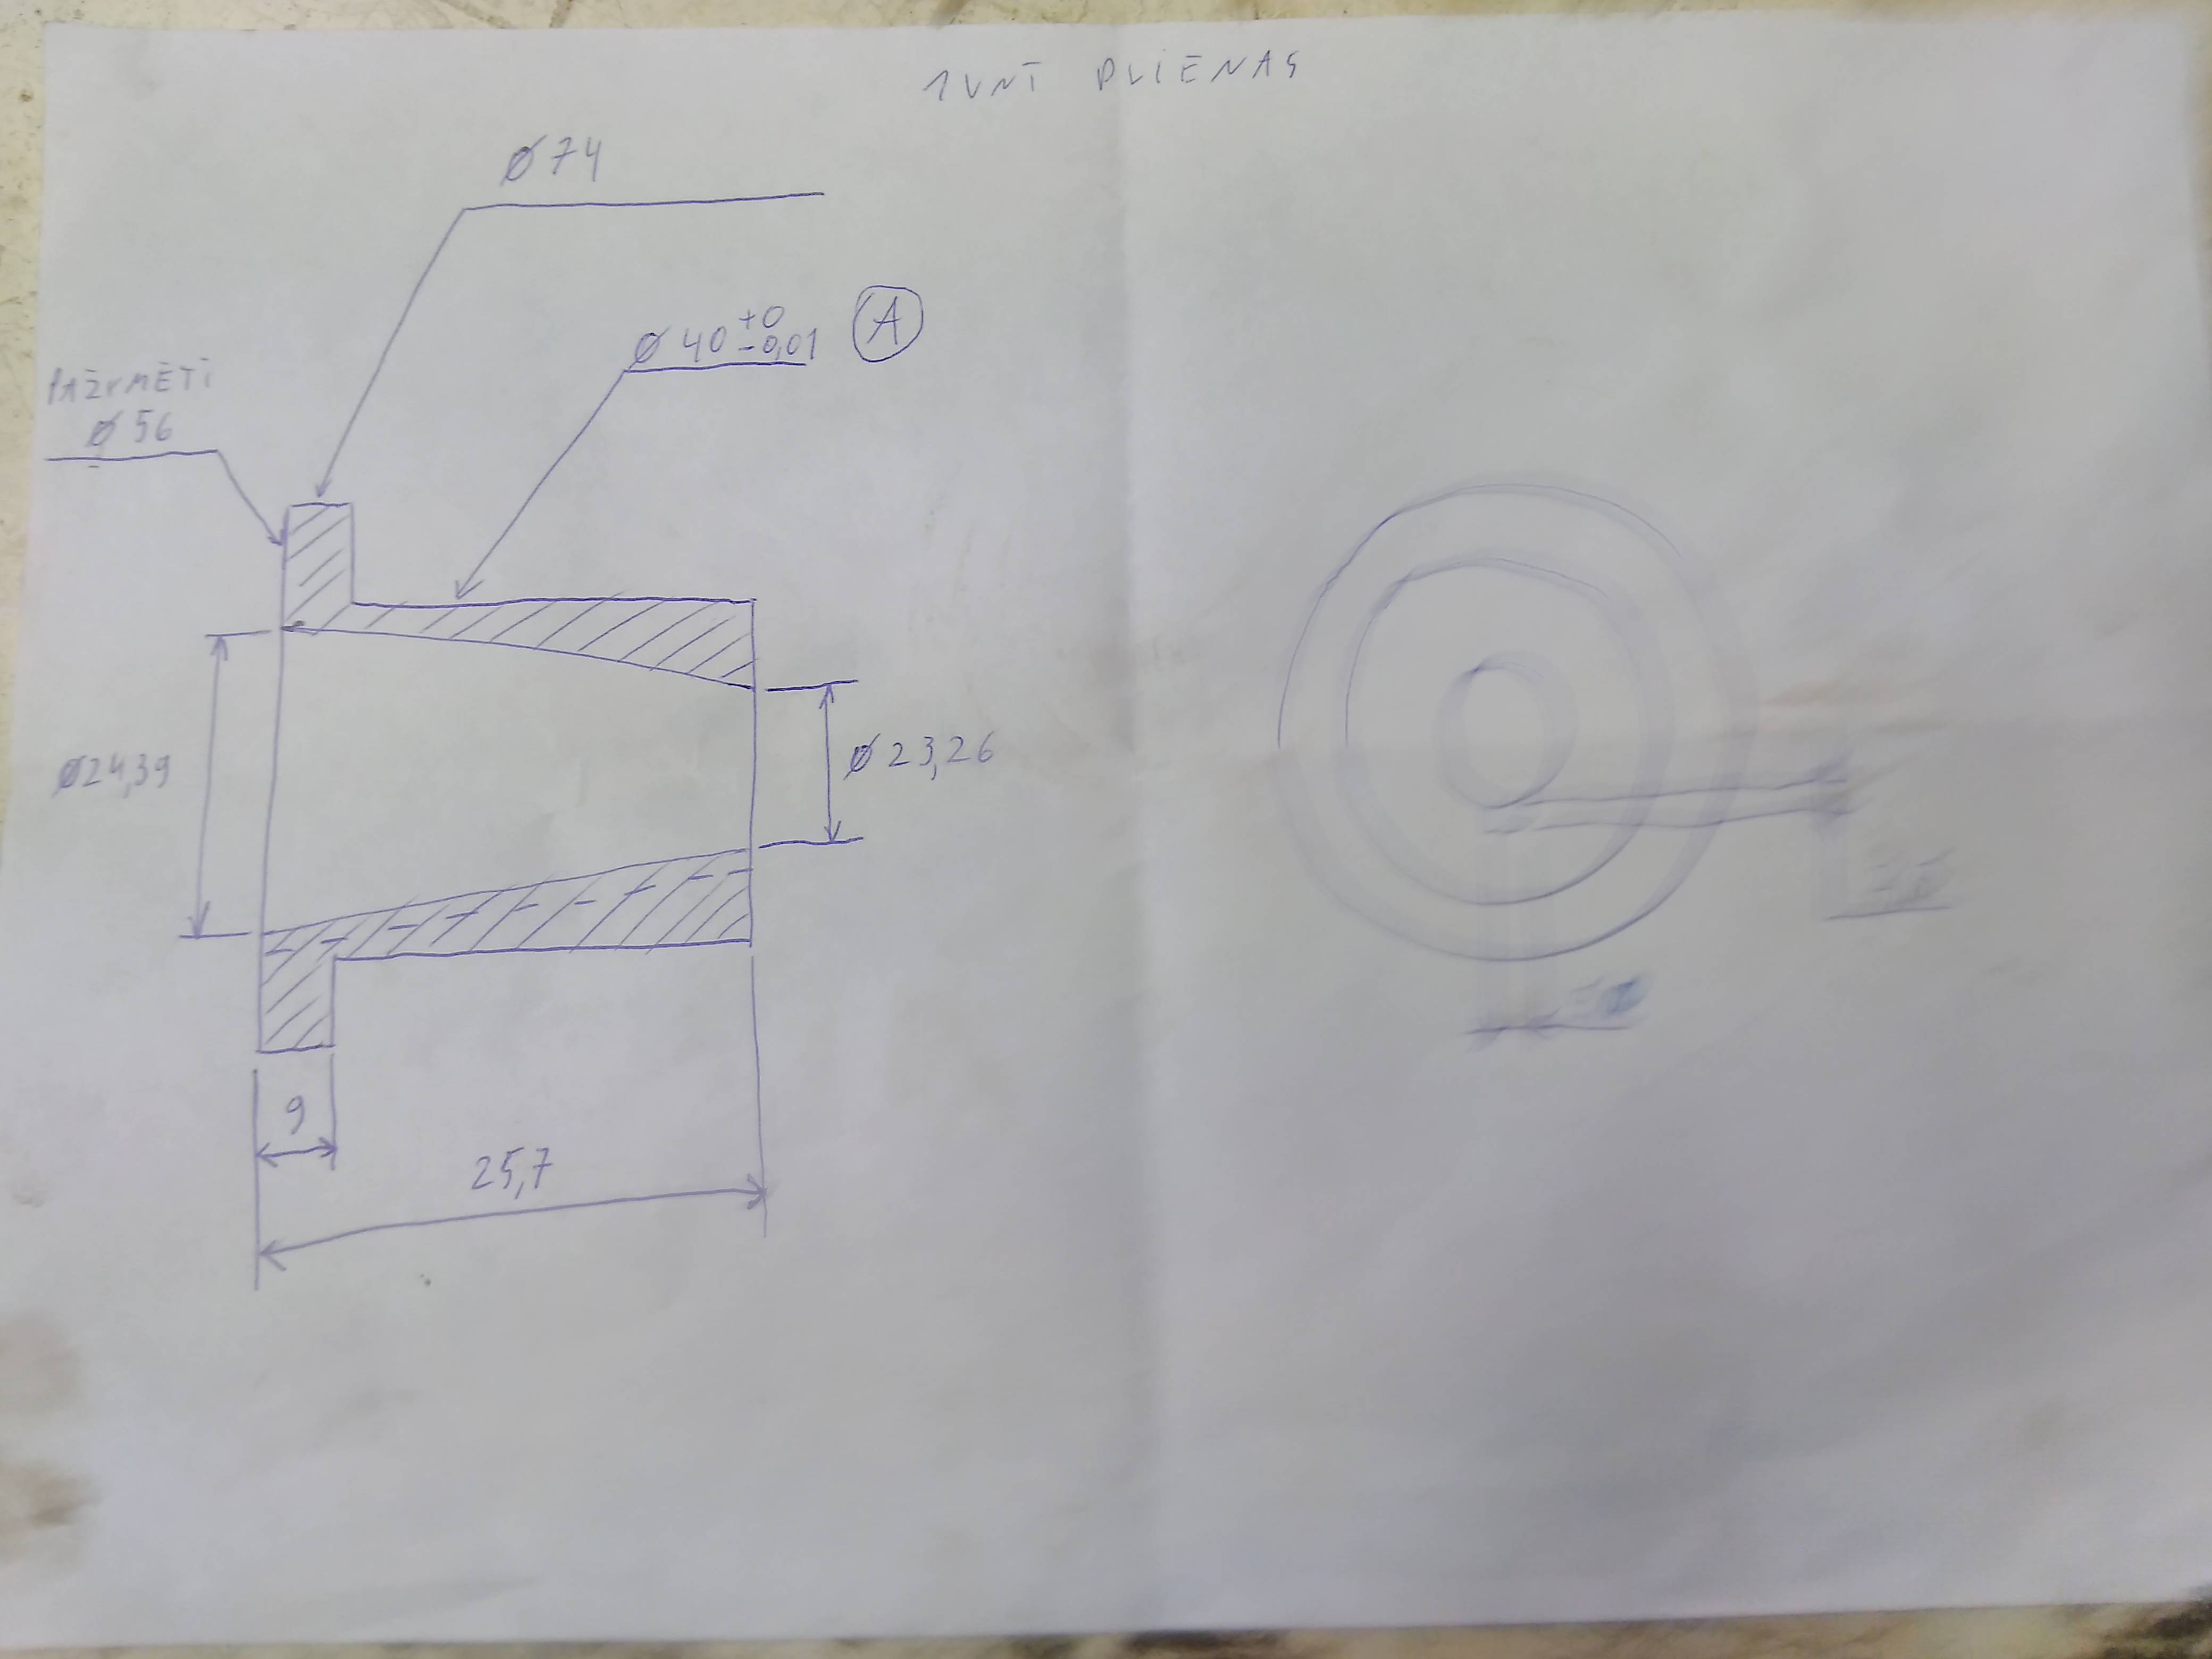 1VNT PLIENAS
Ø74
Ø40 +0 -0,01 A
PAŽYMĖTI
Ø56
Ø24,39
Ø23,26
9
25,7